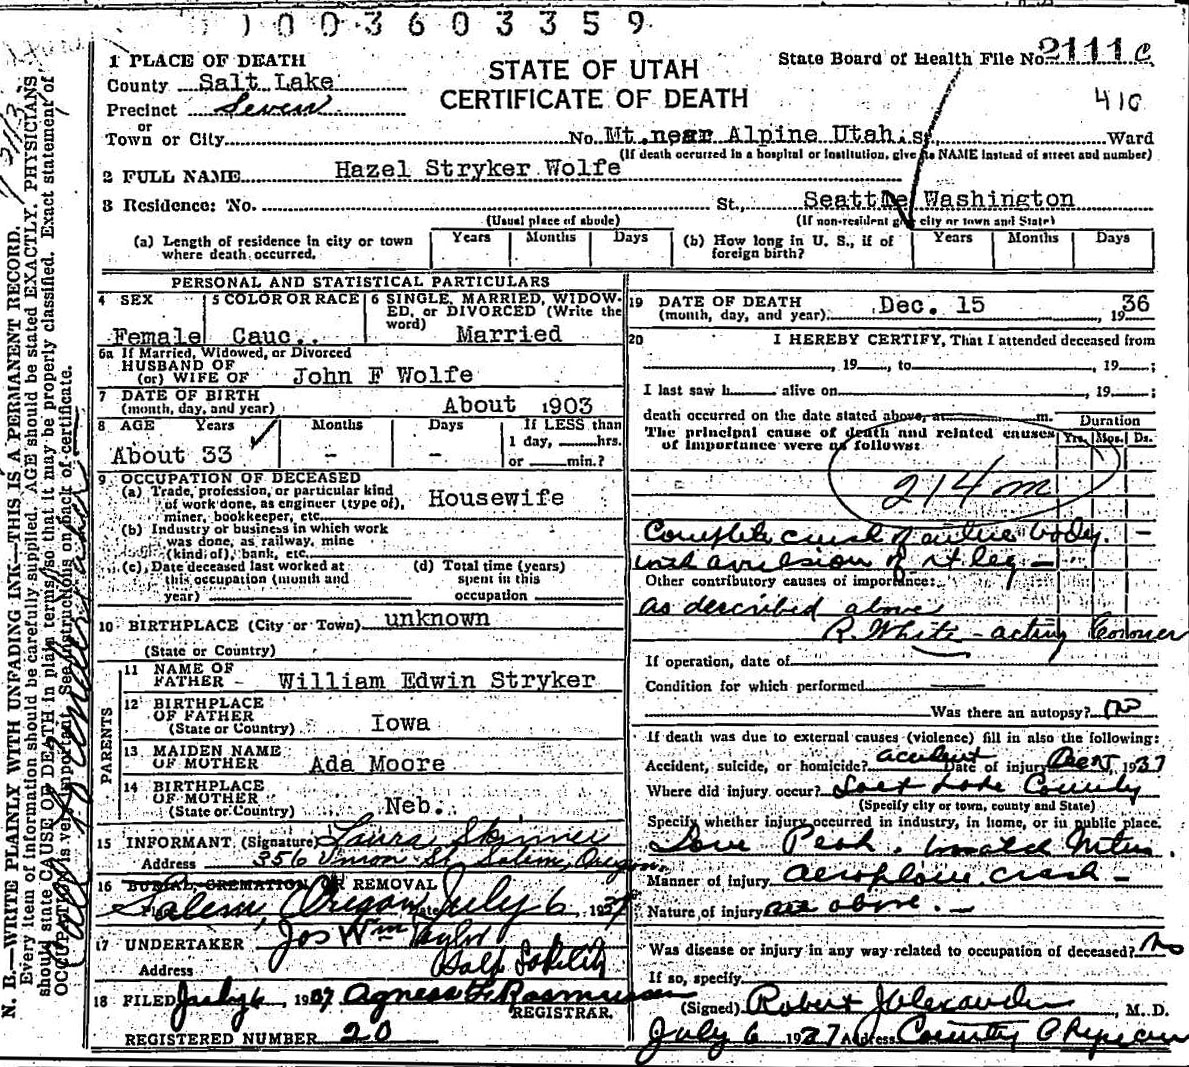 1003603359
1 PLACE OF DEATH
County Salt Lake
Precinct Seven
or
Town or City
STATE OF UTAH
CERTIFICATE OF DEATH
State Board of Health File No. 2111 c
410
No. Mt. near Alpine Utah. St., Ward
(If death occurred in a hospital or institution, give its NAME instead of street and number)
2 FULL NAME Hazel Stryker Wolfe
3 Residence: No. St., Seattle Washington
(Usual place of abode) (If non-resident give city or town and State)
(a) Length of residence in city or town where death occurred. Years Months Days
(b) How long in U. S., if of foreign birth? Years Months Days
PERSONAL AND STATISTICAL PARTICULARS
4 SEX
Female
5 COLOR OR RACE
Cauc..
6 SINGLE, MARRIED, WIDOW-
ED, or DIVORCED (Write the
word) Married
6a If Married, Widowed, or Divorced
HUSBAND OF
(or) WIFE OF John F Wolfe
7 DATE OF BIRTH
(month, day, and year) About 1903
8 AGE Years Months Days If LESS than
1 day, hrs.
or min.?
About 33 - -
9 OCCUPATION OF DECEASED
(a) Trade, profession, or particular kind
of work done, as engineer (type of),
miner, bookkeeper, etc. Housewife
(b) Industry or business in which work
was done, as railway, mine
(kind of), bank, etc.
(c) Date deceased last worked at
this occupation (month and
year)
(d) Total time (years)
spent in this
occupation
10 BIRTHPLACE (City or Town) unknown
(State or Country)
PARENTS
11 NAME OF
FATHER - William Edwin Stryker
12 BIRTHPLACE
OF FATHER
(State or Country) Iowa
13 MAIDEN NAME
OF MOTHER Ada Moore
14 BIRTHPLACE
OF MOTHER
(State or Country) Neb.
15 INFORMANT (Signature) Laura Skinner
Address 356 Union St, Salem, Oregon
16 BURIAL, CREMATION OR REMOVAL
Salem, Oregon Date July 6, 1937
17 UNDERTAKER Jos Wm Taylor
Address Salt Lake City
18 FILED July 6, 1937 Agness F. Rasmussen
REGISTRAR.
REGISTERED NUMBER 20
19 DATE OF DEATH
(month, day, and year) Dec. 15, 1936
20 I HEREBY CERTIFY, That I attended deceased from
, 19 , to , 19 ;
I last saw h alive on , 19 ;
death occurred on the date stated above, at m.
The principal cause of death and related causes
of importance were as follows:
Duration
Yrs. Mos. Ds.
214 m
Complete crush of entire body. -
with avulsion of rt leg -
Other contributory causes of importance:
as described above
R. White - acting Coroner
If operation, date of
Condition for which performed
Was there an autopsy? no
If death was due to external causes (violence) fill in also the following:
Accident, suicide, or homicide? accident Date of injury 1937
Where did injury occur? Salt Lake County
(Specify city or town, county and State)
Specify whether injury occurred in industry, in home, or in public place.
Lone Peak,
Manner of injury aeroplane crash -
Nature of injury as above. -
Was disease or injury in any way related to occupation of deceased? No
If so, specify
(Signed) Robert J Alexander, M. D.
July 6 1937 Address County
N. B.—WRITE PLAINLY WITH UNFADING INK—THIS IS A PERMANENT RECORD.
Every item of information should be carefully supplied. AGE should be stated EXACTLY. PHYSICIANS
should state CAUSE OF DEATH in plain terms, so that it may be properly classified. Exact statement of
OCCUPATION is very important. See instructions on back of certificate.